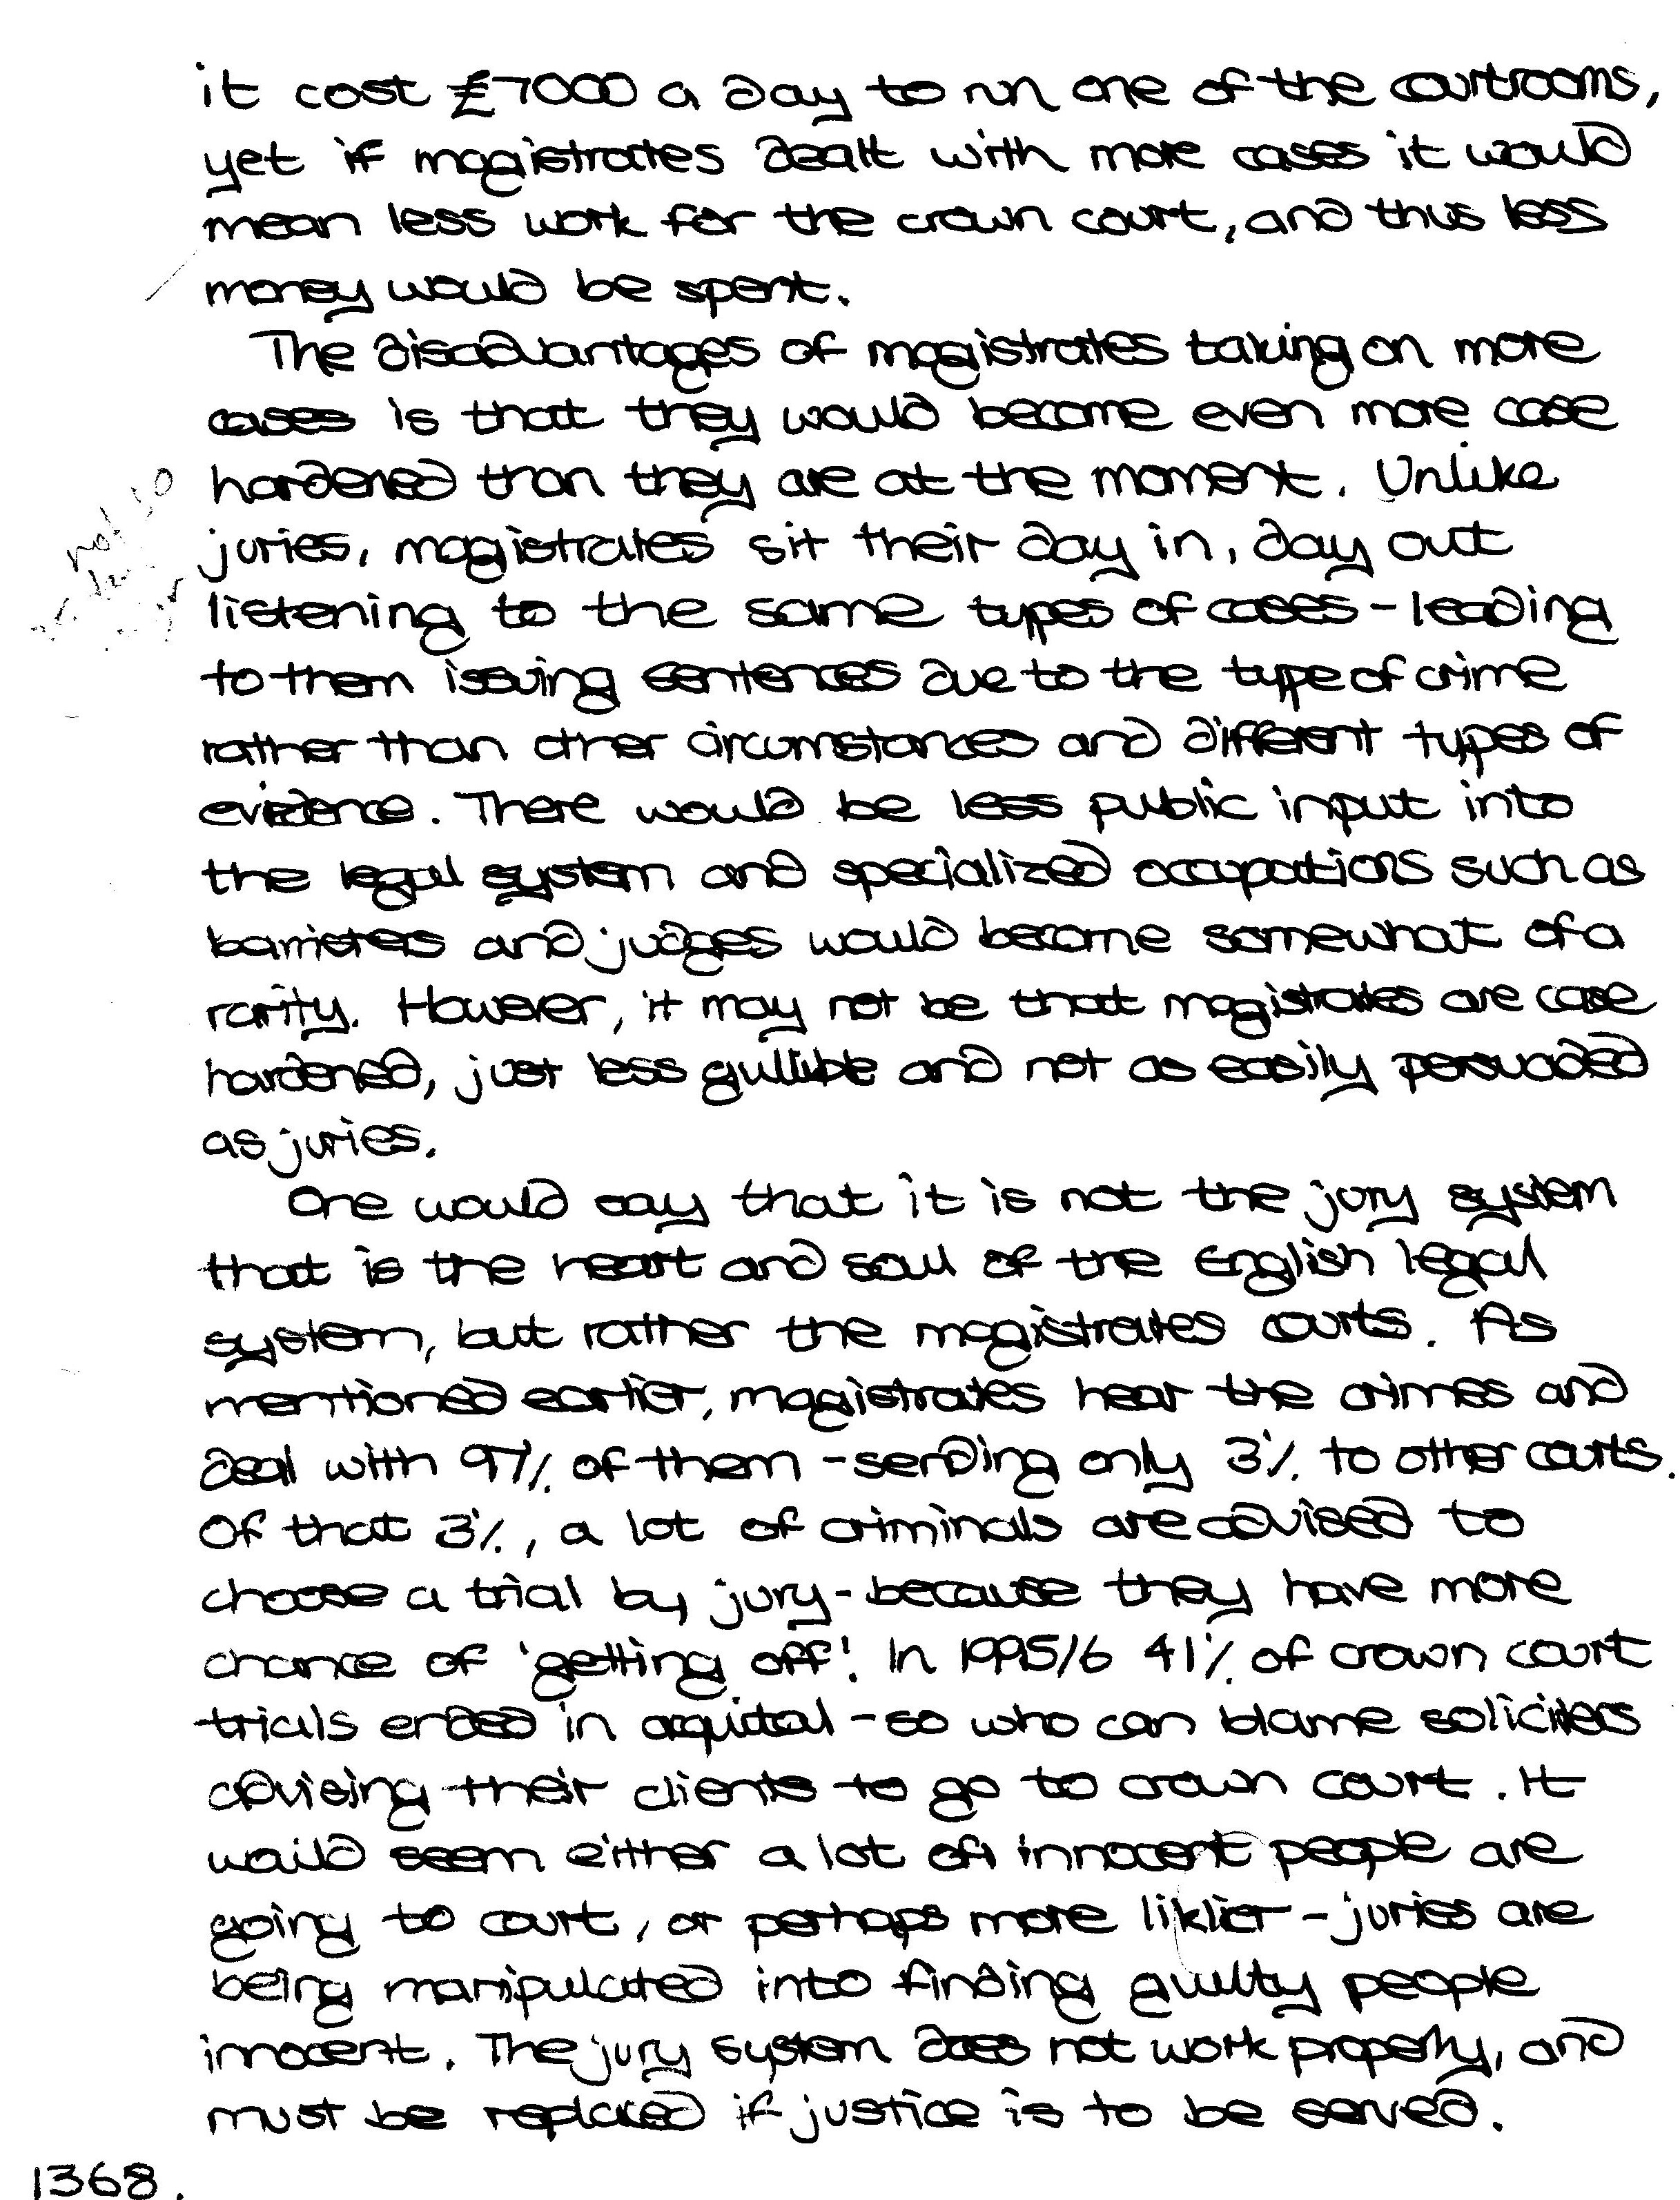 it cost £7000 a day to run one of the courtrooms,
yet if magistrates dealt with more cases it would
mean less work for the crown court, and thus less
money would be spent.
The disadvantages of magistrates taking on more
cases is that they would become even more case
hardened than they are at the moment. Unlike
juries, magistrates sit their day in, day out
listening to the same types of cases - leading
to them issuing sentences due to the type of crime
rather than other circumstances and different types of
evidence. There would be less public input into
the legal system and specialized occupations such as
barristers and judges would become somewhat of a
rarity. However, it may not be that magistrates are case
hardened, just less gullible and not as easily persuaded
as juries.
One would say that it is not the jury system
that is the heart and soul of the English legal
system, but rather the magistrates courts. As
mentioned earlier, magistrates hear the crimes and
deal with 97% of them - sending only 3% to other courts.
Of that 3%, a lot of criminals are advised to
choose a trial by jury - because they have more
chance of 'getting off'. In 1995/6 41% of crown court
trials ended in acquital - so who can blame soliciters
advising their clients to go to crown court. It
would seem either a lot of innocent people are
going to court, or perhaps more liklier - juries are
being manipulated into finding guilty people
innocent. The jury system does not work properly, and
must be replaced if justice is to be served.
1368.
not so